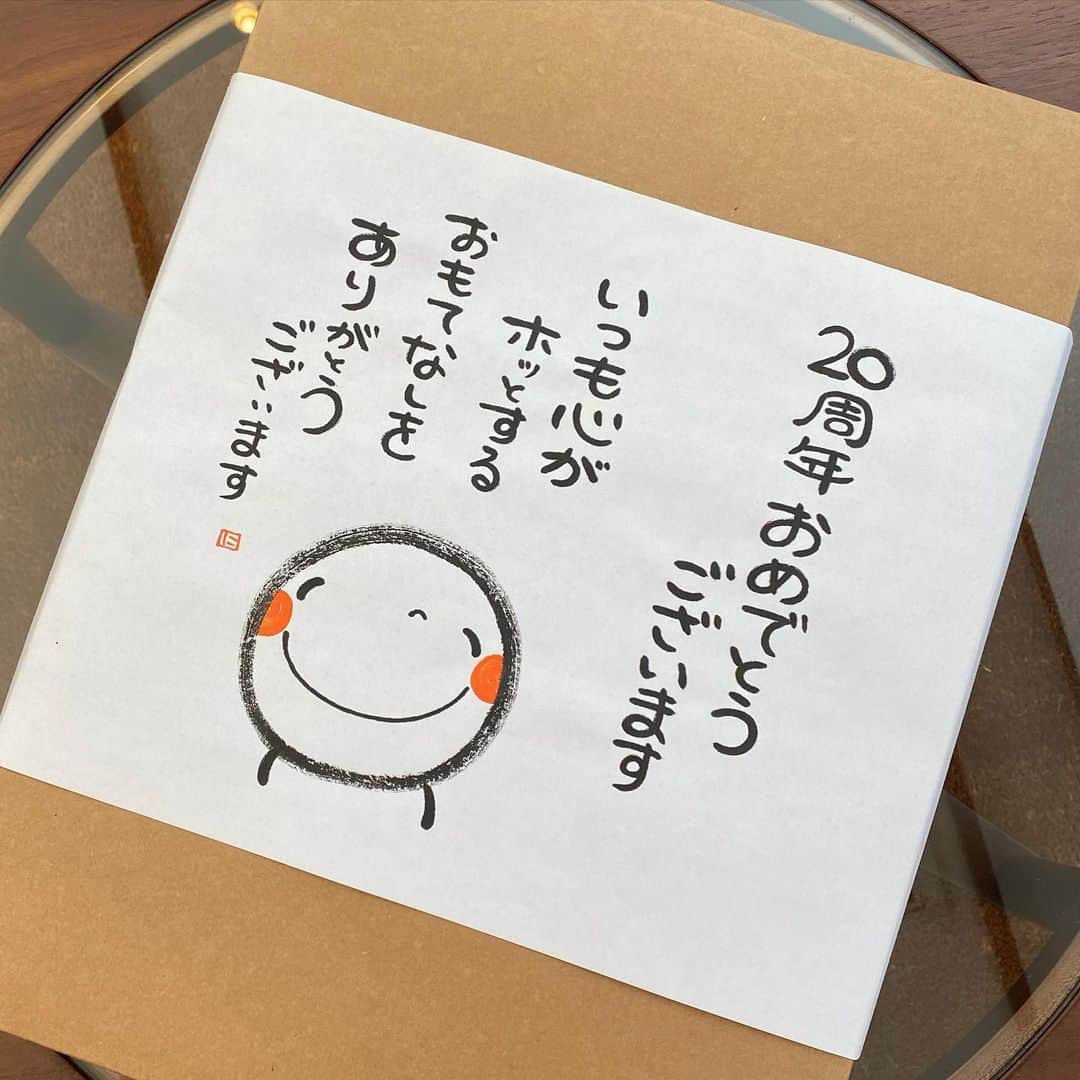 20周年おめでとう
ございます
いつも心が
ホッとする
おもてなしを
ありがとう
ございます